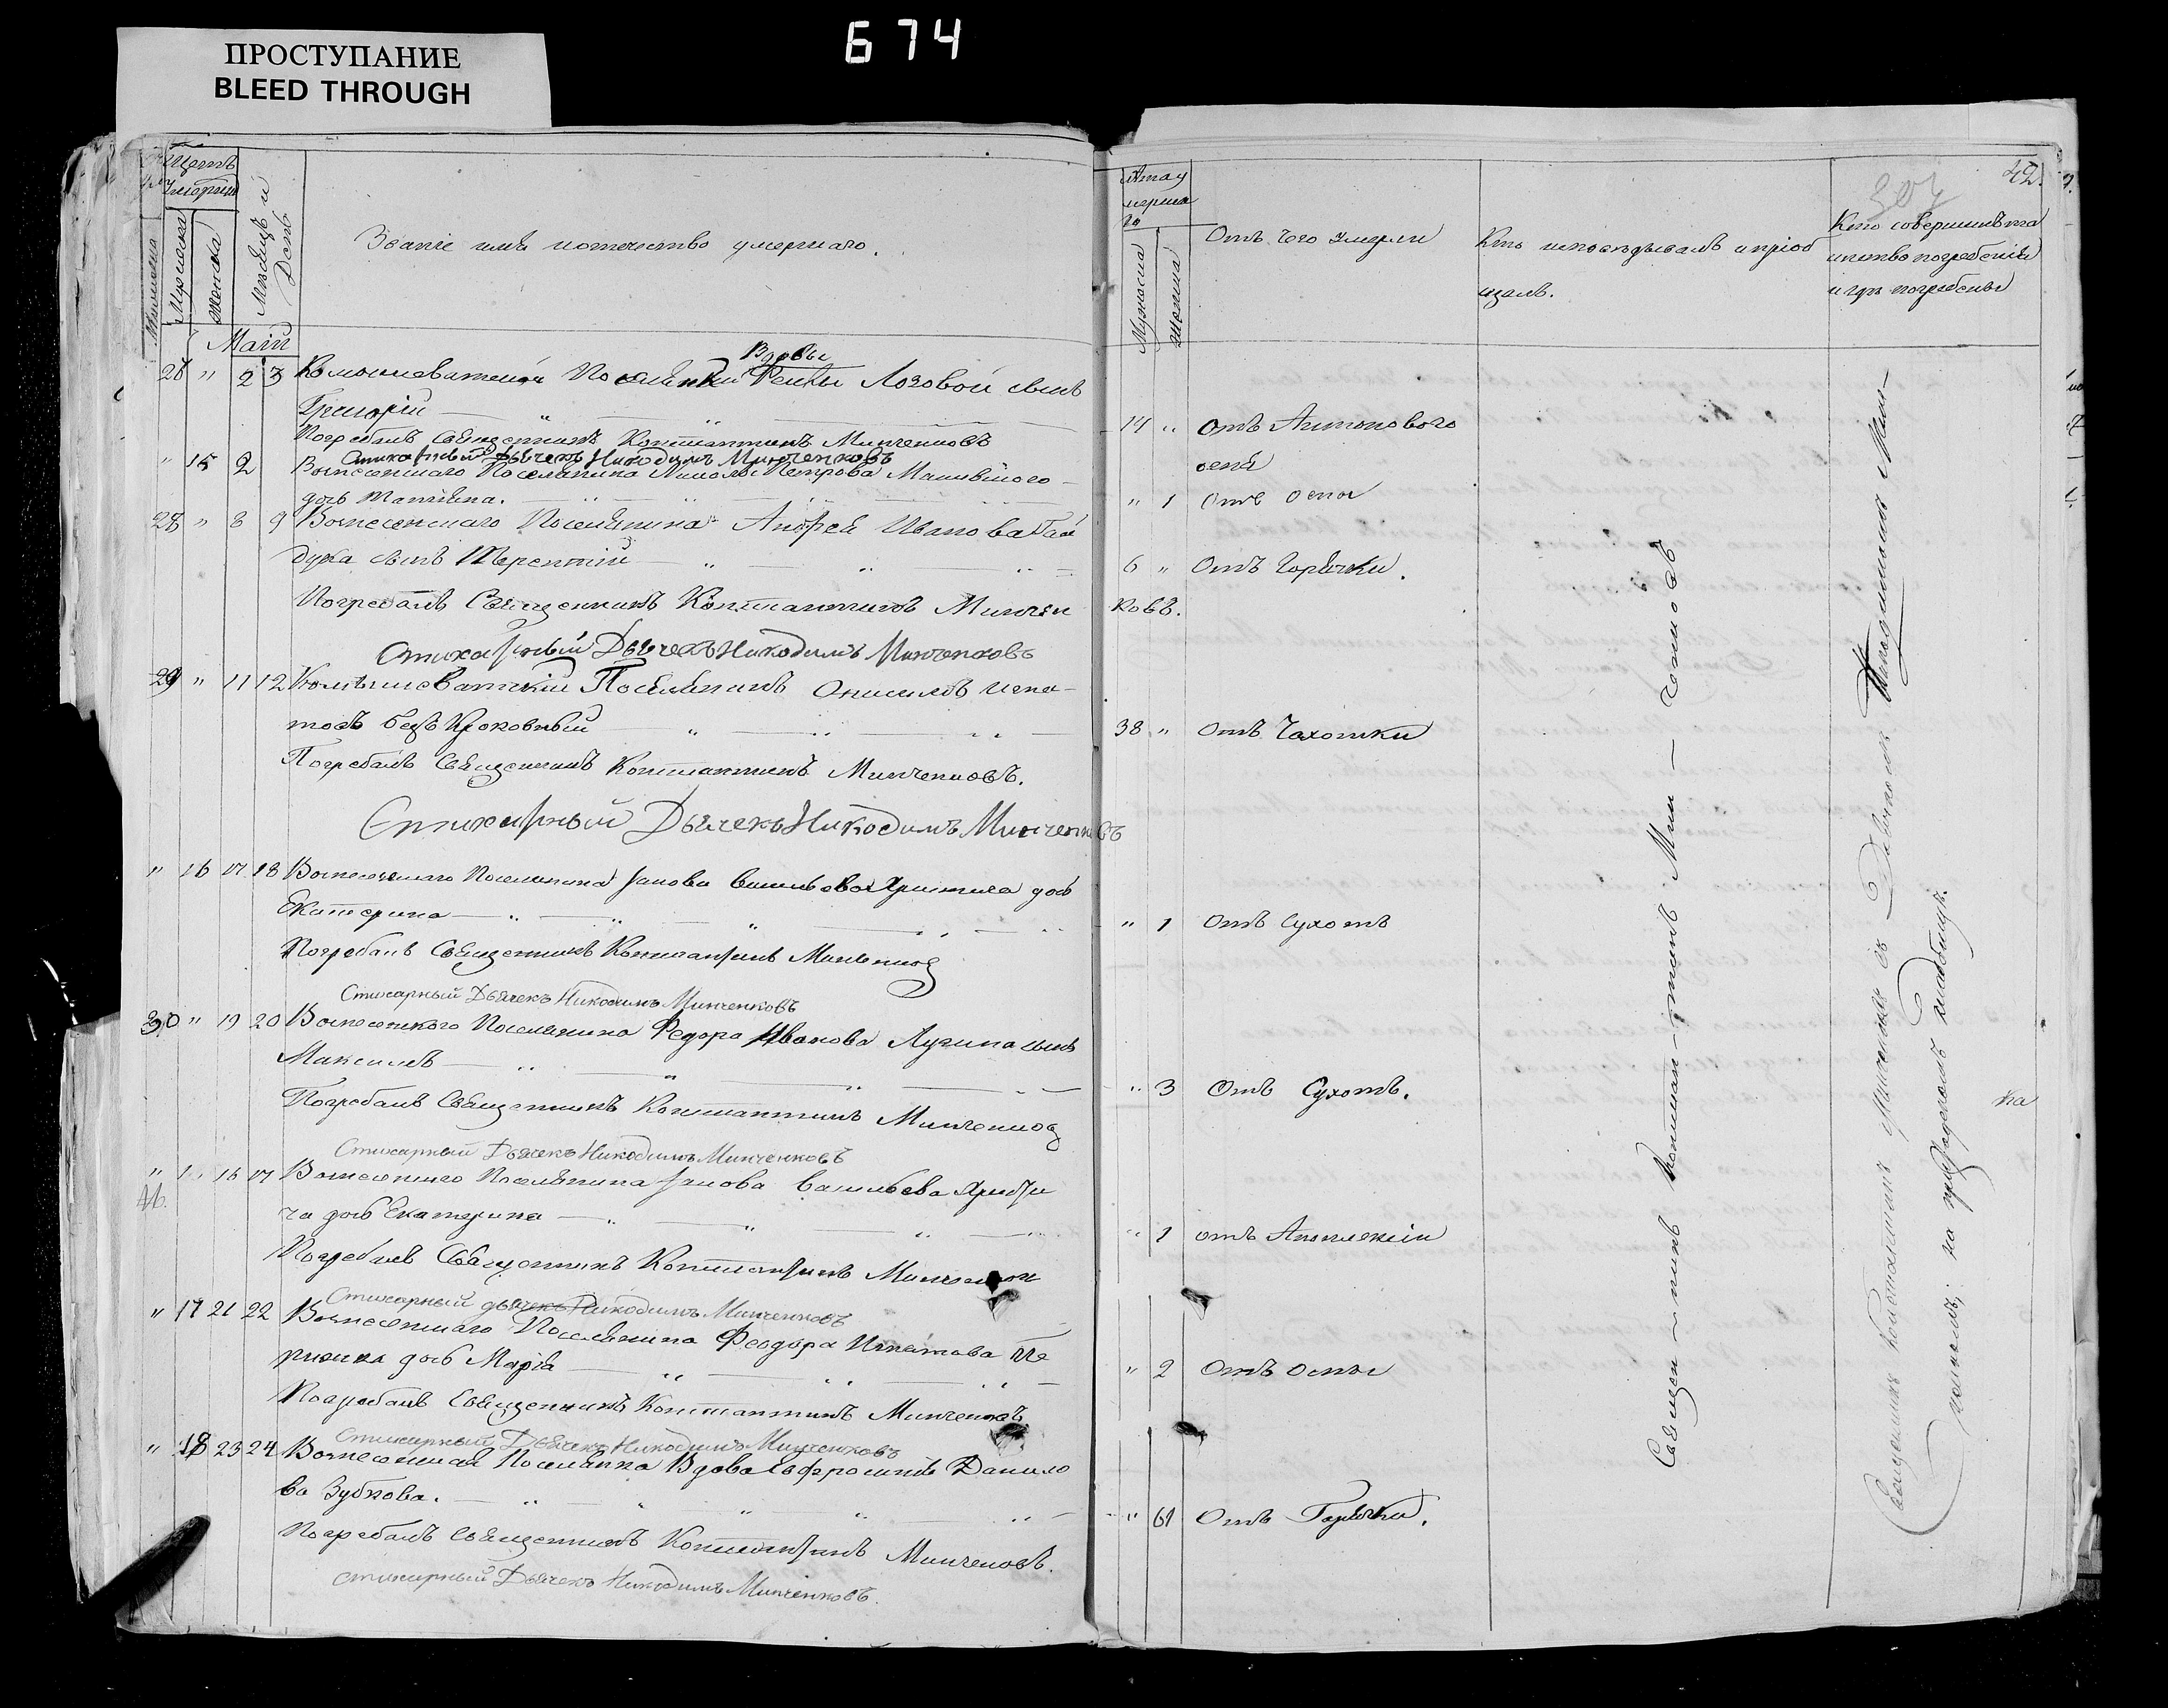 674
ПРОСТУПАНИЕ
BLEED THROUGH
42.
Счетъ
умершихъ
Мужеска
Женска
Мѣсяцъ и
День
Званіе имя иотечество умершаго.
Лѣта у
мерша
го
Мужеска
Женска
Отъ чего умерли
Кто исповѣдывалъ ипріоб
щалъ.
Кто совершилъ та
инство погребенія
и гдѣ погребены
Маій
Вдовы
26 " 2 3 Комышеватской Поселянки Феклы Лозовой сынъ
Григорій
14 " отъ Антонового
огня
Погребалъ Священникъ Константинъ Минченковъ
Стихарный Дьячекъ Никодимъ Минченковъ
" 15 2 Вознесенскаго Поселянина Петрова
дочь Татіяна.
" 1 отъ оспы
28 " 8 9 Вознесенскаго Поселянина Андрея Иванова Гай
дука сынъ Терентій
6 " Отъ Горячки.
Погребалъ Священникъ Константинъ Минчен
ковъ.
Стихарный Дьячекъ Никодимъ Минченковъ
29 " 11 12 Комышеватскій Поселянинъ Онисимъ Игна-
товъ безъ Кровный
38 " отъ Чахотки
Погребалъ Священникъ Константинъ Минченковъ.
Стихарный Дьячекъ Никодимъ Минченковъ
" 16 17 18 Вознесенскаго Поселянина Якова Васильева дочь
Екатерина
" 1 Отъ Сухотъ
Погребалъ Священникъ Константинъ Минченков
Стихарный Дьячекъ Никодимъ Минченковъ
30 " 19 20 Вознесенскаго Поселянина Федора Иванова Лугина сынъ
Максимъ
" 3 Отъ Сухотъ.
Погребалъ Священникъ Константинъ Минченков
Стихарный Дьячекъ Никодимъ Минченковъ
" 16 17 Вознесенскаго Поселянина Якова Васильева
ча дочь Екатерина
" 1 отъ Апоплексіи
Погребалъ Священникъ Константинъ
Стихарный дьячекъ Никодимъ Минченковъ
" 17 21 22 Вознесенскаго Поселянина Феодора Игнатова
дочь Марія
" 2 Отъ оспы
Погребалъ Священникъ Константинъ Минченковъ
Стихарный Дьячекъ Никодимъ Минченковъ
" 18 23 24 Вознесенская Поселянка Вдова Ефросинія Данило
ва Зубкова.
" 61 Отъ Горячки.
Погребалъ Священникъ Константинъ Минченковъ.
Стихарный Дьячекъ Никодимъ Минченковъ.
Священ-никъ Констан-тинъ Мин-ченковъ
Священникъ Константинъ Минченковъ съ Дьячкомъ Никодимомъ Мин-
ченковымъ, на приходскомъ кладбищѣ.
на